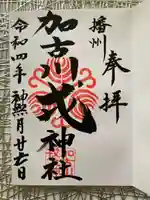 奉拝
播州
加古川戎神社
令和四年 神無月廿六日